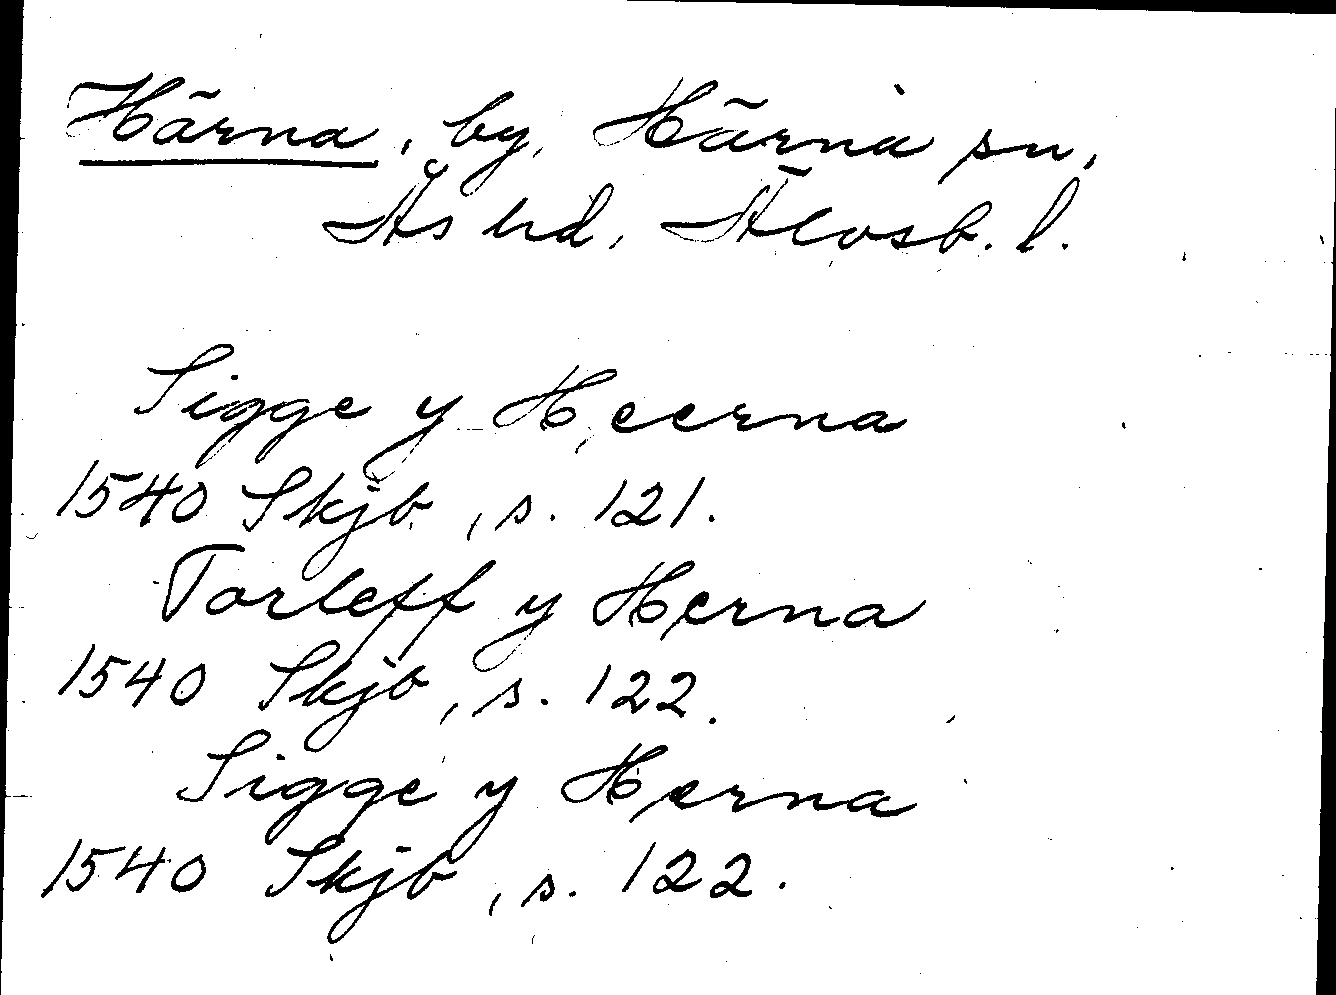 Härna, by, Härna sn,
Ås hd, Älvsb. l.
Sigge y Heerna
1540 Skjb, s. 121.
Torleff y Herna
1540 Skjb, s. 122.
Sigge y Herna
1540 Skjb, s. 122.